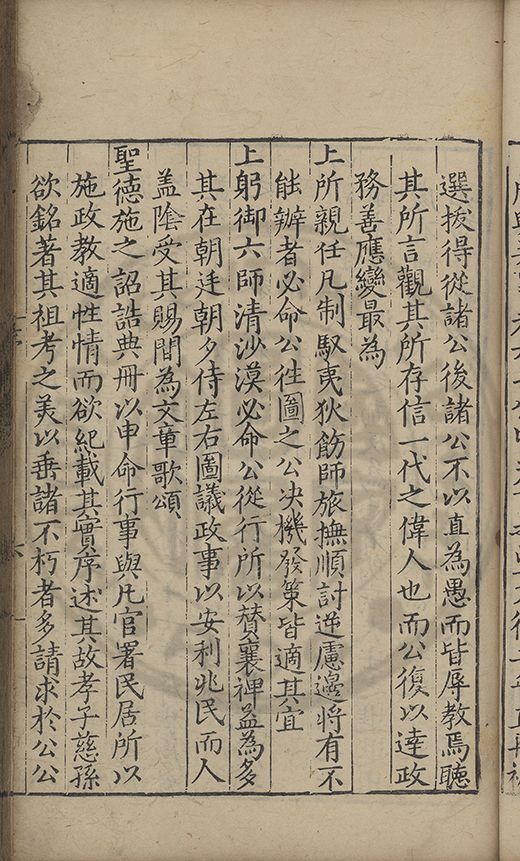 選拔得從諸公後諸公不以直為愚而皆辱教焉聽
其所言觀其所存信一代之偉人也而公復以達政
務善應變最為
上所親任凡制馭夷狄飭師旅撫順討逆慮邊將有不
能辦者必命公往圖之公决機發策皆適其宜
上躬御六師清沙漠必命公從行所以賛襄裨益為多
其在朝廷朝夕侍左右圖議政事以安利兆民而人
盖陰受其賜間為文章歌頌
聖德施之詔誥典冊以申命行事與凡官署民居所以
施政教適性情而欲紀載其實序述其故孝子慈孫
欲銘著其祖考之美以垂諸不朽者多請求於公公